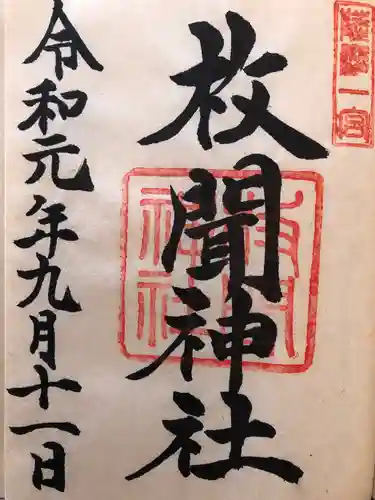 薩摩一宮
枚聞神社
枚聞神社
令和元年九月十一日